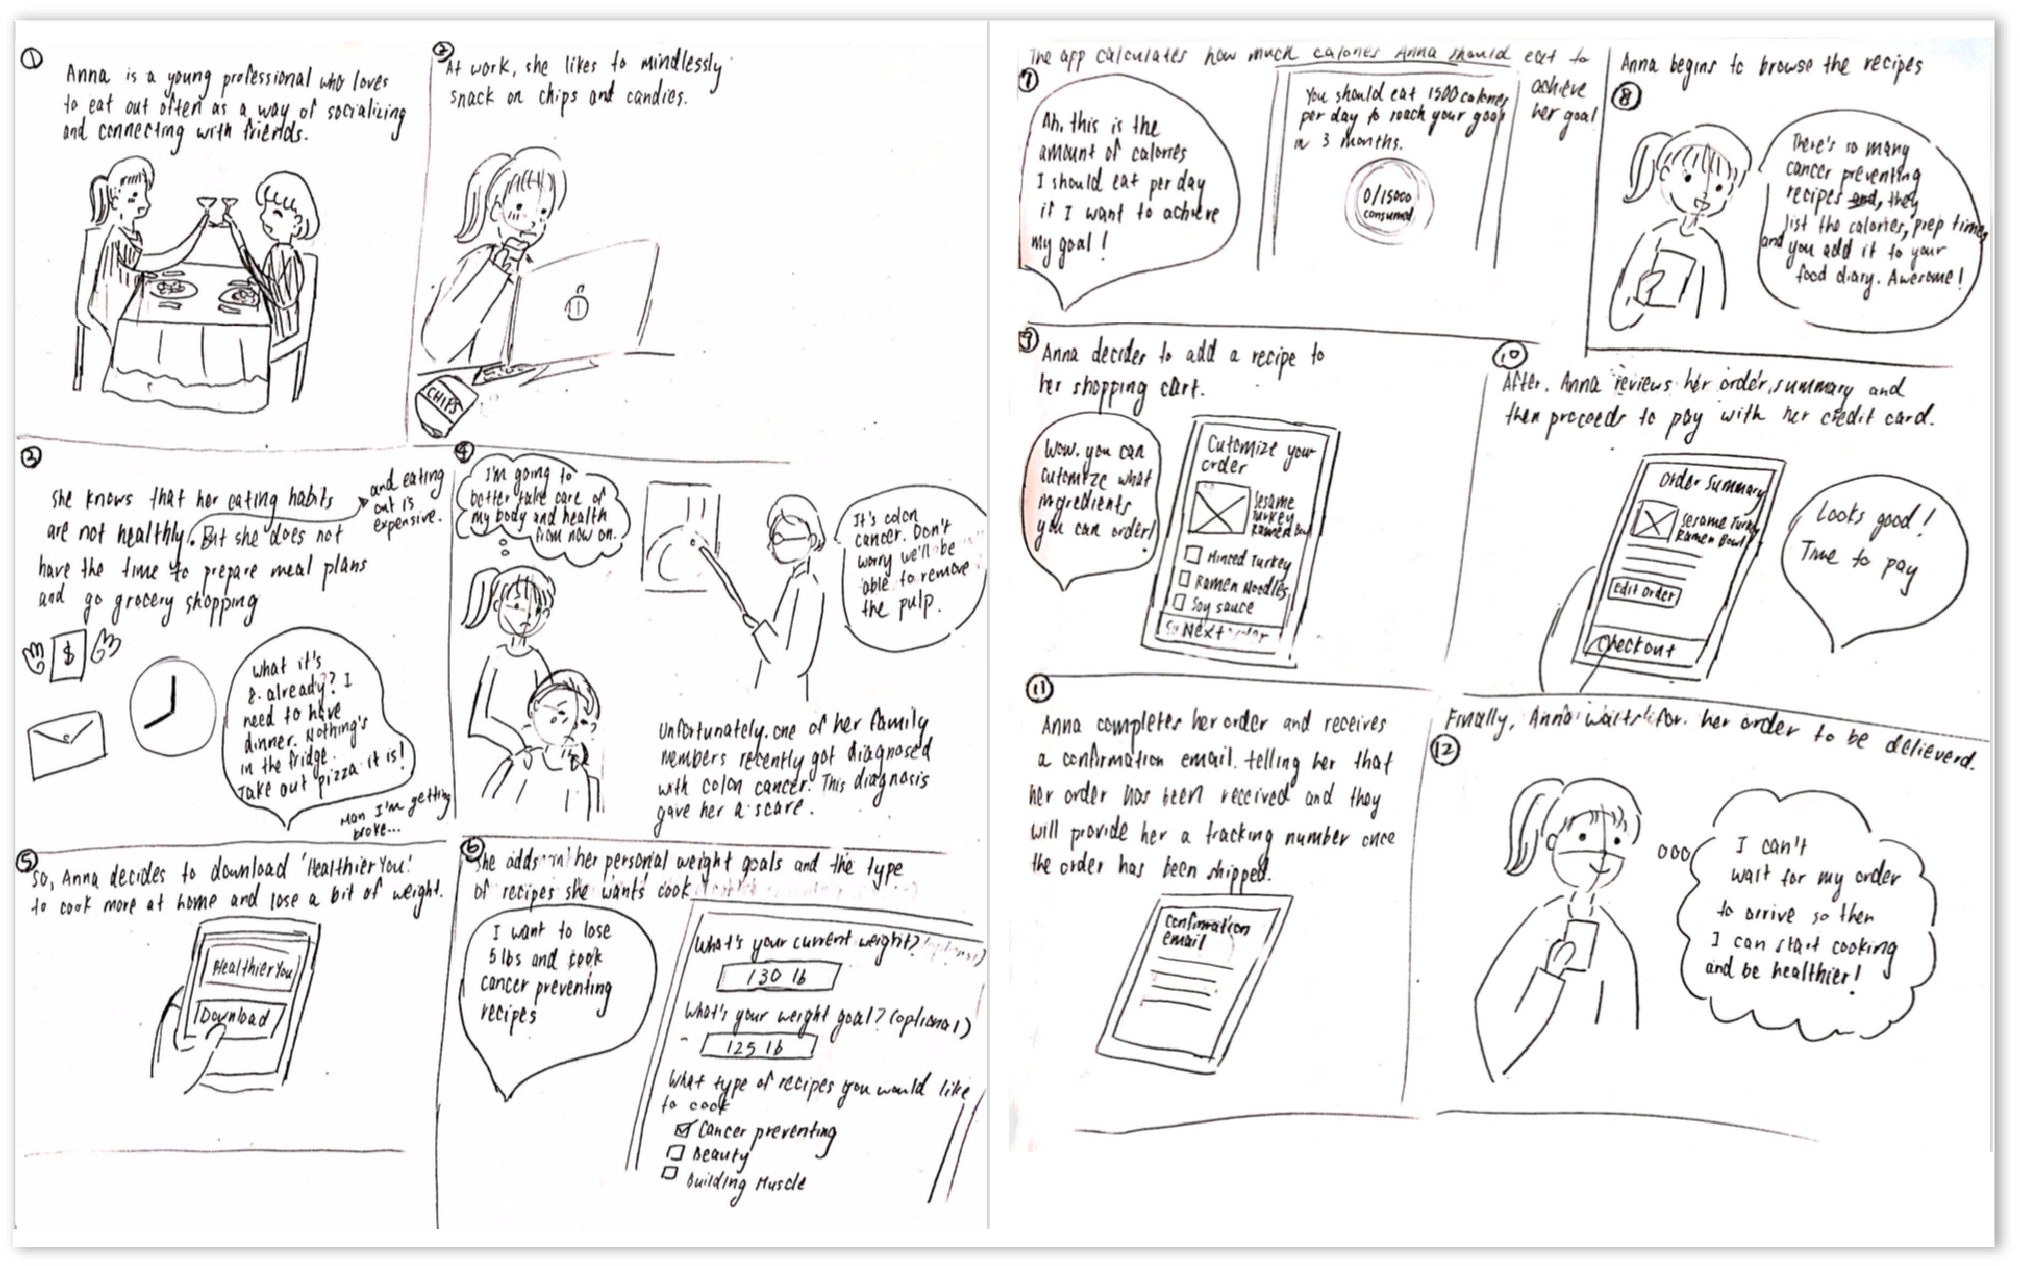 1
Anna is a young professional who loves
to eat out often as a way of socializing
and connecting with friends.
2
At work, she likes to mindlessly
snack on chips and candies.
CHIPS
3
She knows that her eating habits
are not healthy. But she does not
have the time to prepare meal plans
and go grocery shopping
and eating
out is
expensive.
$
What it's
8. already? I
need to have
dinner. Nothing's
in the fridge.
Take out pizza it is!
Man I'm getting
broke...
4
I'm going to
better take care of
my body and health
from now on.
It's colon
cancer. Don't
worry we'll be
able to remove
the pulp.
Unfortunately, one of her family
members recently got diagnosed
with colon cancer. This diagnosis
gave her a scare.
5
So, Anna decides to download 'Healthier You'
to cook more at home and lose a bit of weight.
Healthier You
Download
6
She adds in her personal weight goals and the type
of recipes she wants cook
I want to lose
5 lbs and cook
cancer preventing
recipes
What's your current weight? (optional)
130 lb
What's your weight goal? (optional)
125 lb
What type of recipes you would like
to cook
Cancer preventing
Beauty
Building Muscle
The app calculates how much calories Anna should eat to
achieve
her goal
7
Ah, this is the
amount of calories
I should eat per day
if I want to achieve
my goal!
You should eat 1500 calories
per day to reach your goal
in 3 months.
0/15000
consumed
Anna begins to browse the recipes
8
There's so many
cancer preventing
recipes and, they
list the calories, prep time,
and you add it to your
food diary. Awesome!
9
Anna decides to add a recipe to
her shopping cart.
Wow, you can
cutomize what
ingredients
you can order!
Cutomize your
order
Sesame
Turkey
Ramen Bowl
Minced Turkey
Ramen Noodles
Soy sauce
Next
10
After, Anna reviews her order summary and
then proceeds to pay with her credit card.
Order Summary
Sesame Turkey
Ramen Bowl
Edit order
Checkout
Looks good!
Time to pay
11
Anna completes her order and receives
a confirmation email telling her that
her order has been received and they
will provide her a tracking number once
the order has been shipped.
Confirmation
email
Finally, Anna waits for her order to be delieverd.
12
I can't
wait for my order
to arrive so then
I can start cooking
and be healthier!